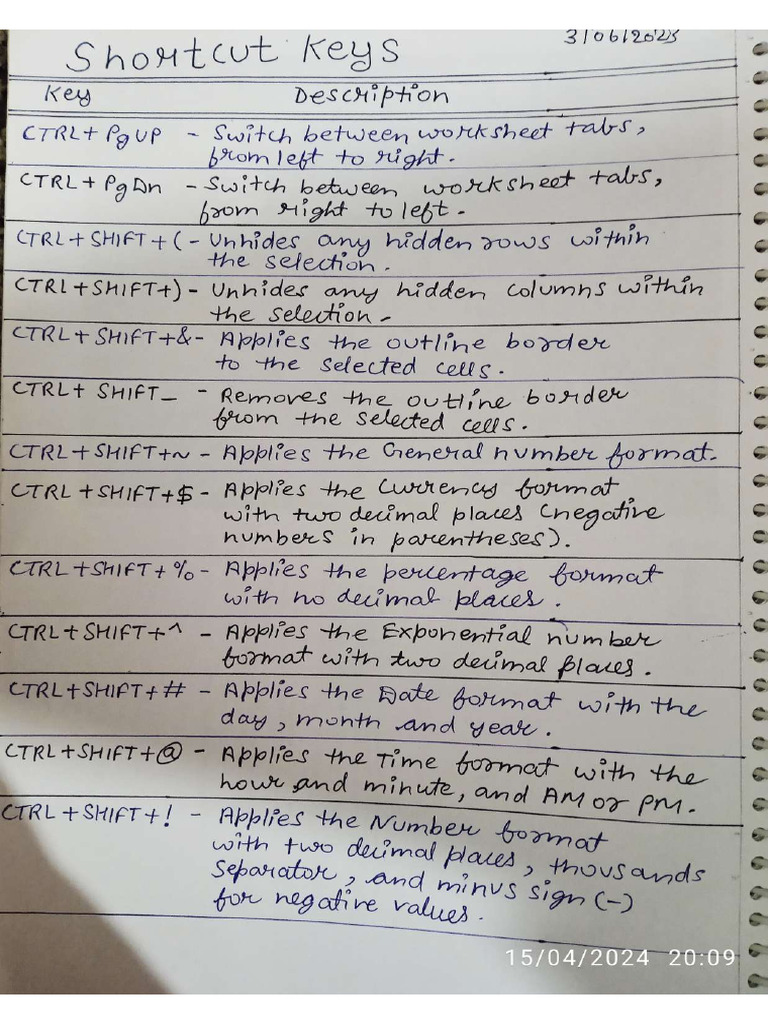 31/06/2023
Shortcut Keys
Key Description
CTRL+ PgUP - Switch between worksheet tabs,
from left to right.
CTRL + PgDn - Switch between worksheet tabs,
from right to left.
CTRL+SHIFT+( - Unhides any hidden rows within
the selection.
CTRL+SHIFT+) - Unhides any hidden columns within
the selection.
CTRL+SHIFT+& - Applies the outline border
to the selected cells.
CTRL+ SHIFT_ - Removes the outline border
from the selected cells.
CTRL+SHIFT+~ - Applies the General number format.
CTRL+SHIFT+$ - Applies the Currency format
with two decimal places (negative
numbers in parentheses).
CTRL+SHIFT+% - Applies the percentage format
with no decimal places.
CTRL+SHIFT+^ - Applies the Exponential number
format with two decimal places.
CTRL+SHIFT+# - Applies the Date format with the
day, month and year.
CTRL+SHIFT+@ - Applies the Time format with the
hour and minute, and AM or PM.
CTRL+SHIFT+! - Applies the Number format
with two decimal places, thousands
separator, and minus sign (-)
for negative values.
15/04/2024 20:09